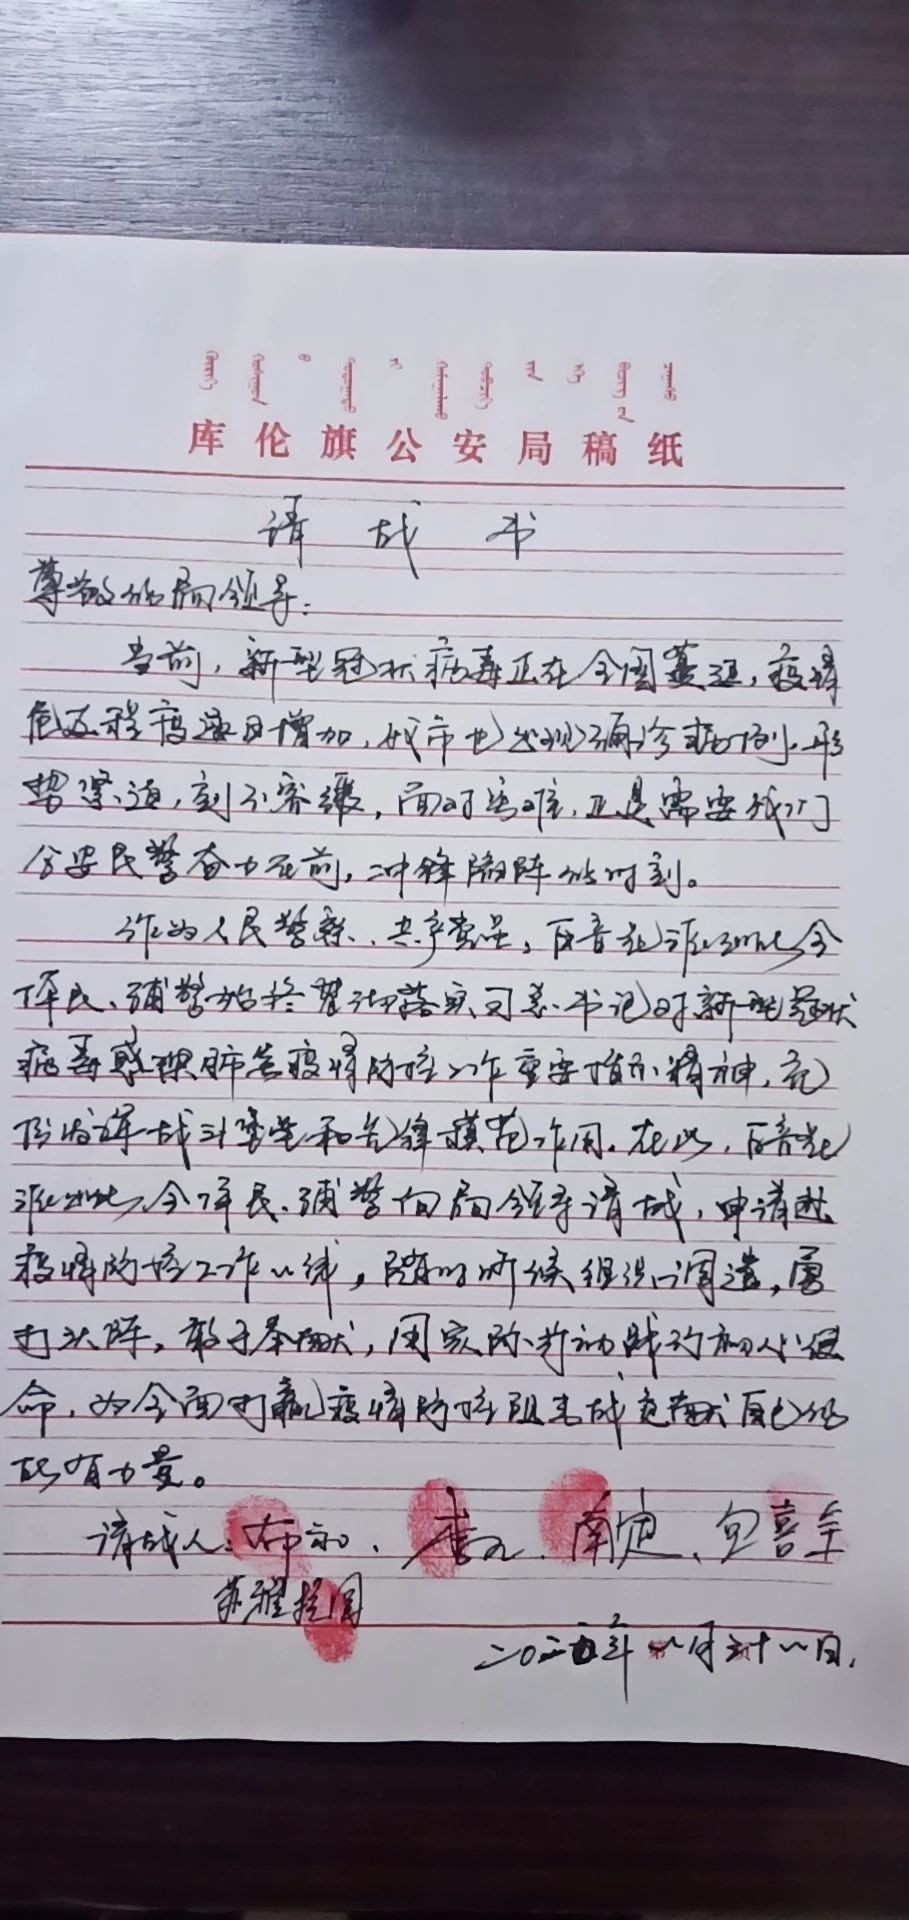 库伦旗公安局稿纸
请战书
尊敬的局领导：
当前，新型冠状病毒正在全国蔓延，疫情
危及程度逐日增加，我市也出现确诊病例，形
势紧迫，刻不容缓，面对危难，正是需要我们
公安民警奋力在前，冲锋陷阵的时刻。
作为人民警察、共产党员，派出所全
体民、辅警始终贯彻落实习总书记对新型冠状
病毒感染肺炎疫情防控工作重要指示精神，充
分发挥战斗堡垒和先锋模范作用。在此，
派出所全体民、辅警向局领导请战，申请赴
疫情防控工作一线，随时听候组织调遣，勇
打头阵，敢于奉献，用实际行动践行初心使
命，为全面打赢疫情防控阻击战贡献自己的
所有力量。
请战人：布和、李、南定、包喜全
苏雅拉图
二〇二〇年一月三十一日